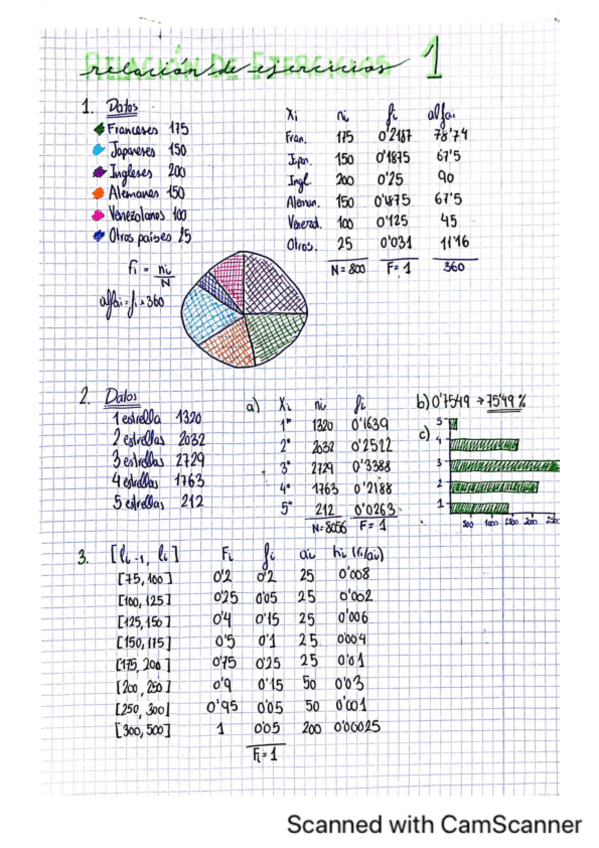 RELACIÓN DE EJERCICIOS
relación de ejercicios 1
1. Datos
Franceses 175
Japoneses 150
Ingleses 200
Alemanes 150
Venezolanos 100
Otros países 25
fi = ni/N
alfai = fi x 360
Xi ni fi alfai
Fran. 175 0'2187 78'74
Japon. 150 0'1875 67'5
Ingl. 200 0'25 90
Aleman. 150 0'1875 67'5
Venezol. 100 0'125 45
Otros. 25 0'031 11'16
N=800 F=1 360
2. Datos
1 estrella 1320
2 estrellas 2032
3 estrellas 2729
4 estrellas 1763
5 estrellas 212
a) Xi ni fi
1* 1320 0'1639
2* 2032 0'2522
3* 2729 0'3388
4* 1763 0'2188
5* 212 0'0263
N=8056 F=1
b) 0'7549 → 75'49 %
c)
5
4
3
2
1
500 1000 1500 2000 2500
3. [li-1, li] Fi fi ai hi (fi/ai)
[75, 100] 0'2 0'2 25 0'008
[100, 125] 0'25 0'05 25 0'002
[125, 150] 0'4 0'15 25 0'006
[150, 175] 0'5 0'1 25 0'004
[175, 200] 0'75 0'25 25 0'01
[200, 250] 0'9 0'15 50 0'03
[250, 300] 0'95 0'05 50 0'001
[300, 500] 1 0'05 200 0'00025
Fi=1
Scanned with CamScanner